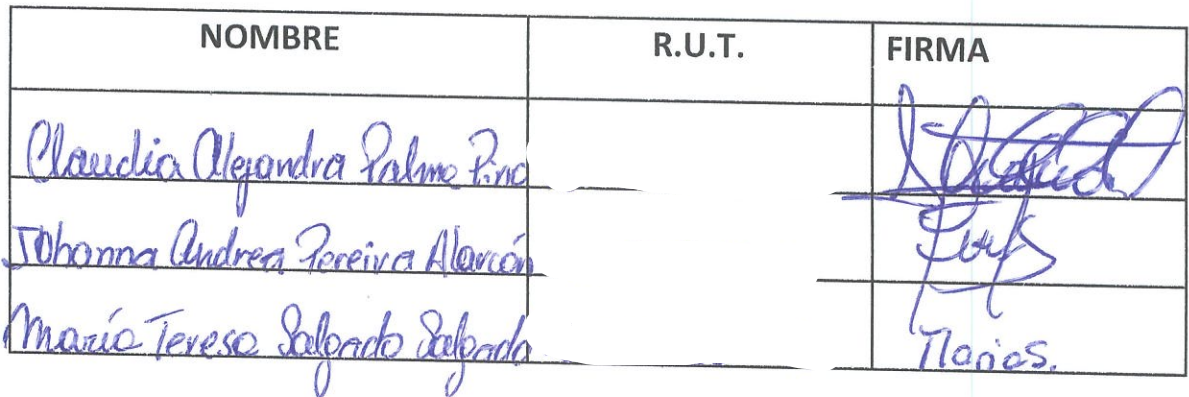 NOMBRE R.U.T. FIRMA
Claudia Alejandra Palma Pino
Johanna Andrea Pereira Alarcón
María Teresa Salgado Salgado MariaS.